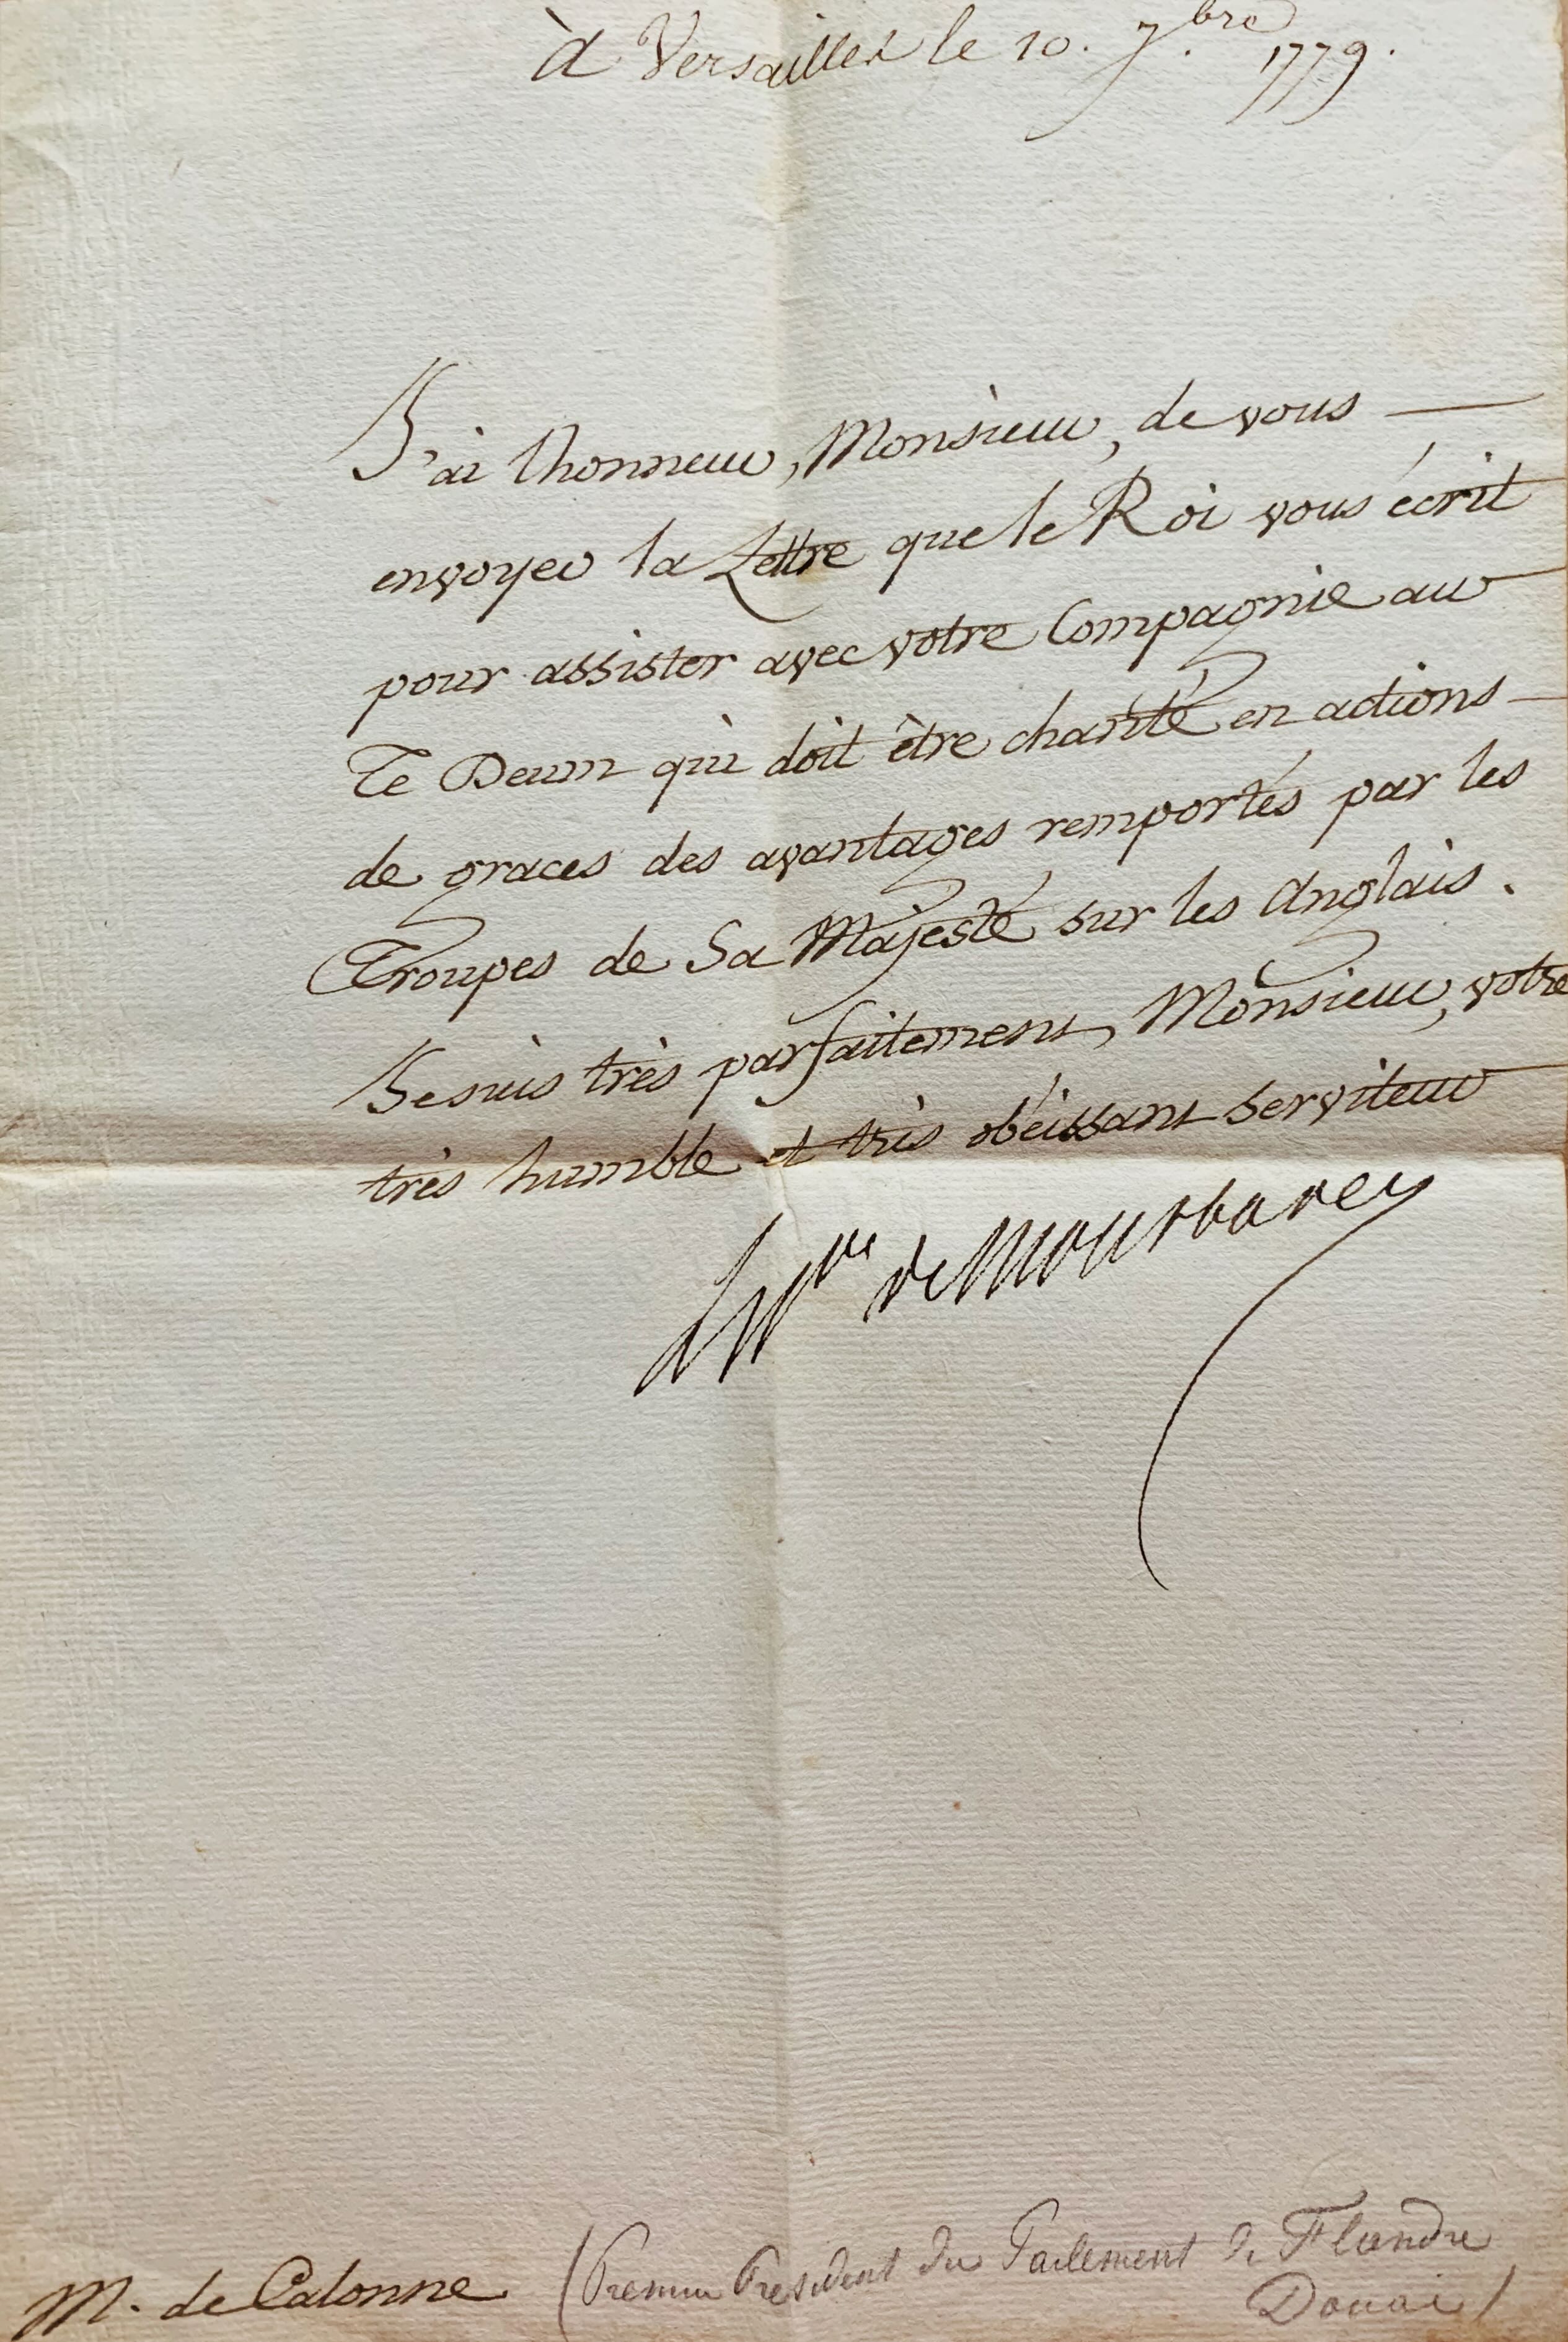 à Versailles le 10. 7.bre 1779.
J'ai l'honneur, Monsieur, de vous
envoyer la Lettre que le Roi vous écrit
pour assister avec votre Compagnie au
Te Deum qui doit être chanté en actions
de graces des avantages remportés par les
Troupes de Sa Majesté sur les Anglais.
Je suis très parfaitement, Monsieur, votre
très humble et très obéissant serviteur
Le Pce de Montbarey
M. de Calonne (Premier Président du Parlement de Flandre
Douai)